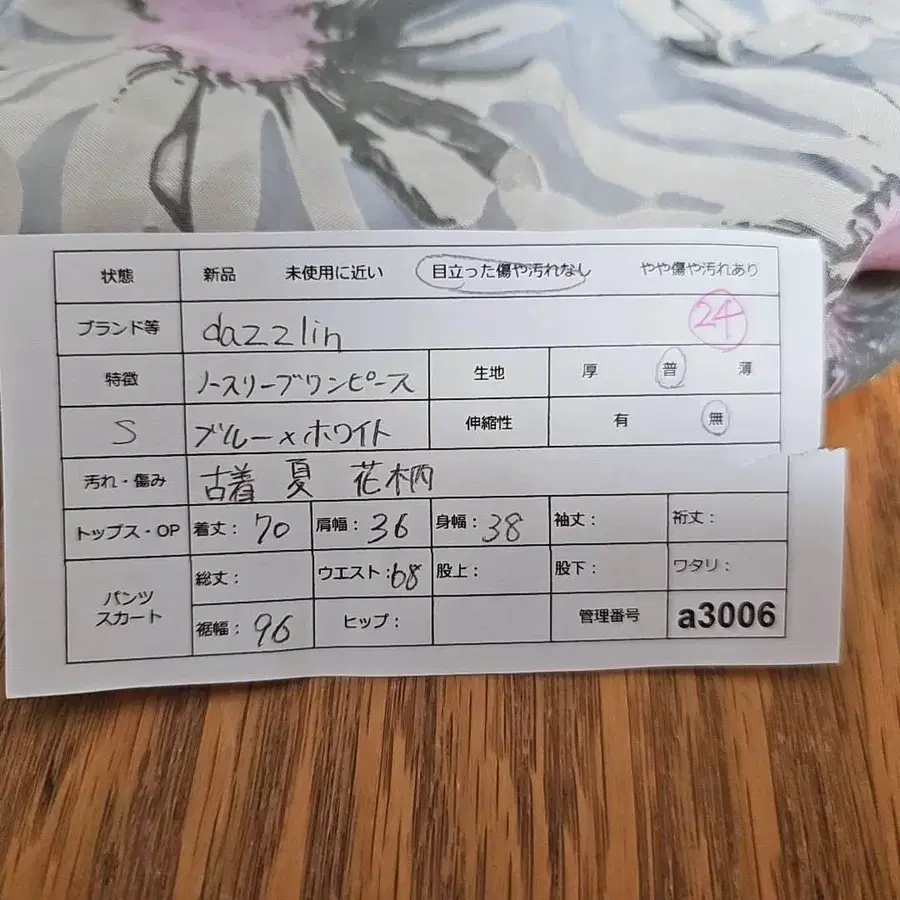 状態 新品 未使用に近い 目立った傷や汚れなし やや傷や汚れあり
ブランド等 dazzlin 24
特徴 ノースリーブワンピース 生地 厚 普 薄
S ブルー×ホワイト 伸縮性 有 無
汚れ・傷み 古着 夏 花柄
トップス・OP 着丈: 70 肩幅: 36 身幅: 38 袖丈: 裄丈:
パンツ スカート 総丈: ウエスト: 68 股上: 股下: ワタリ:
裾幅: 96 ヒップ: 管理番号 a3006